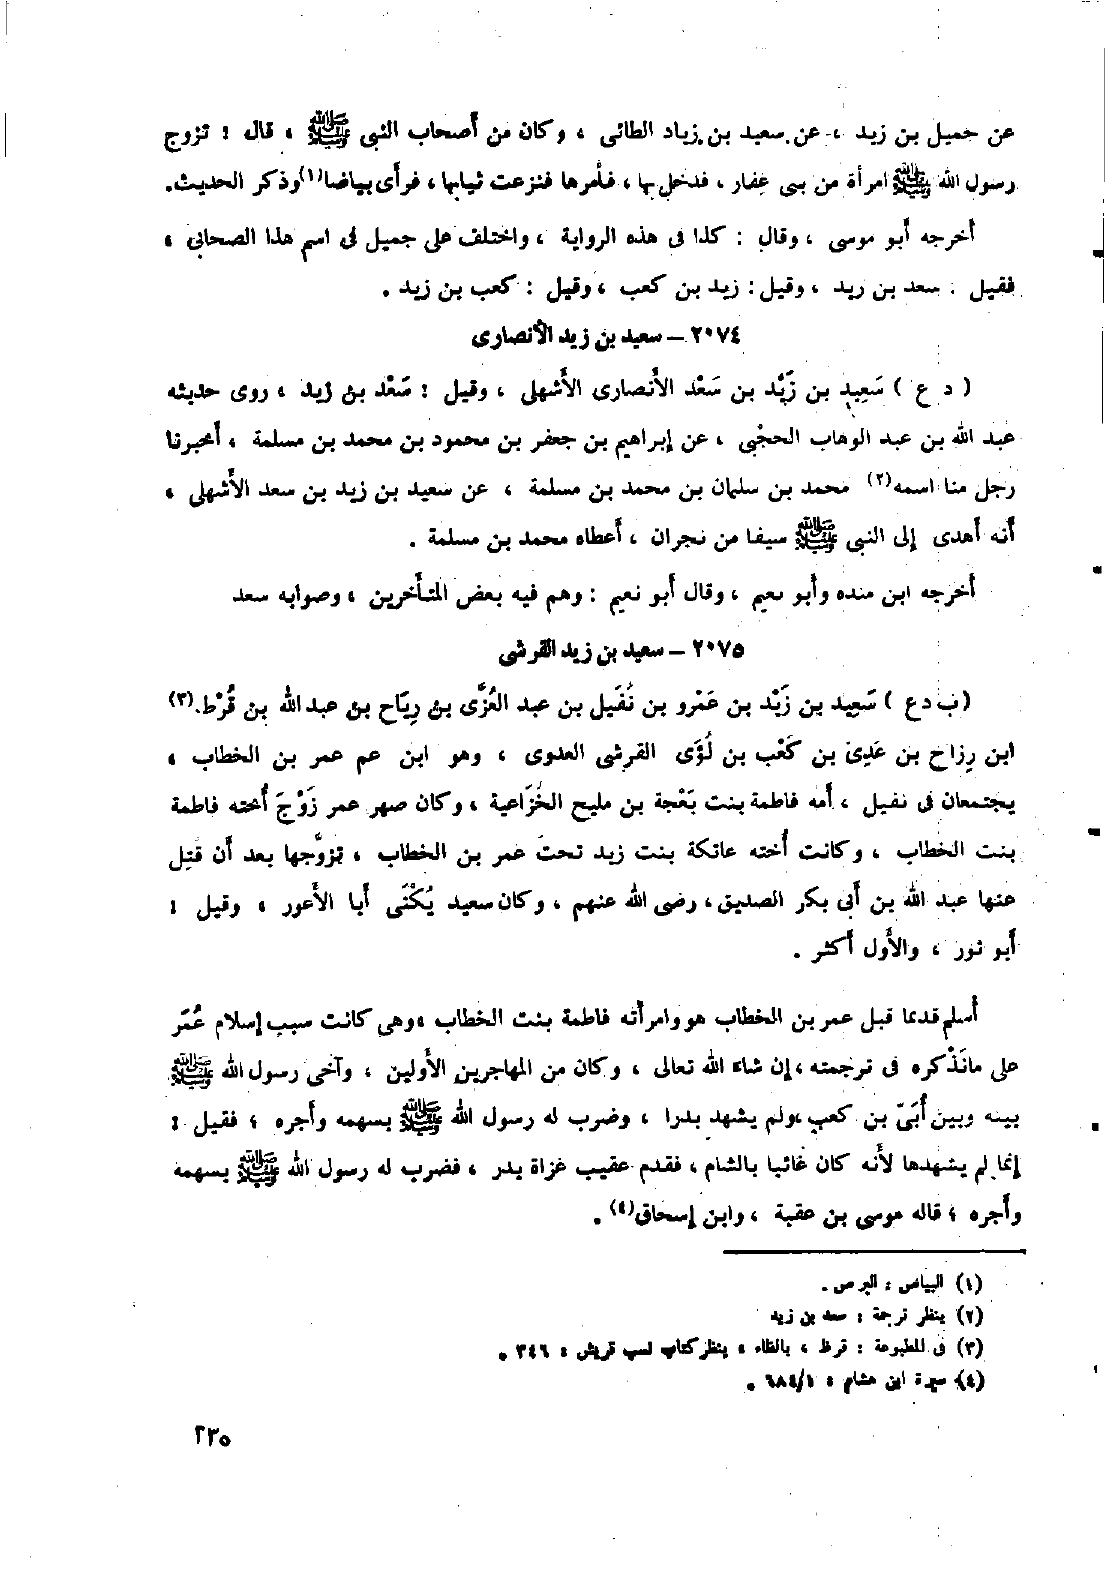 عن جميل بن زيد ، عن سعيد بن زياد الطائى ، وكان من أصحاب النبى ﷺ ، قال : تزوج
رسول الله ﷺ امرأة من بنى غفار ، فدخل بها ، فأمرها فنزعت ثيابها ، فرأى بياضا(١) وذكر الحديث.
أخرجه أبو موسى ، وقال : كذا فى هذه الرواية ، واختلف على جميل فى اسم هذا الصحابي ،
فقيل : سعد بن زيد ، وقيل : زيد بن كعب ، وقيل : كعب بن زيد .
٢٠٧٤ – سعيد بن زيد الأنصارى
( د ع ) سَعِيد بن زَيْد بن سَعْد الأنصارى الأشهلى ، وقيل : سَعْد بن زيد ، روى حديثه
عبد الله بن عبد الوهاب الحجْبى ، عن إبراهيم بن جعفر بن محمود بن محمد بن مسلمة ، أخبرنا
رجل منا اسمه(٢) محمد بن سلمان بن محمد بن مسلمة ، عن سعيد بن زيد بن سعد الأشهلى ،
أنه أهدى إلى النبى ﷺ سيفا من نجران ، أعطاه محمد بن مسلمة .
أخرجه ابن منده وأبو نعيم ، وقال أبو نعيم : وهم فيه بعض المتأخرين ، وصوابه سعد
٢٠٧٥ – سعيد بن زيد القرشى
(ب د ع ) سَعِيد بن زَيْد بن عَمْرو بن نُفَيل بن عبد العُزَّى بن رِيَاح بن عبد الله بن قُرْط.(٣)
ابن رِزاح بن عَدِىّ بن كَعْب بن لُؤَى القرشى العدوى ، وهو ابن عم عمر بن الخطاب ،
يجتمعان فى نفيل ، أمه فاطمة بنت بَعْجة بن مليح الخُزَاعية ، وكان صهر عمر زَوْجَ أخته فاطمة
بنت الخطاب ، وكانت أخته عاتكة بنت زيد تحت عمر بن الخطاب ، تزوَّجها بعد أن قُتِل
عنها عبد الله بن أبى بكر الصديق ، رضى الله عنهم ، وكان سعيد يُكْنَى أبا الأعور ، وقيل :
أبو ثور ، والأول أكثر .
أسلم قديما قبل عمر بن الخطاب هو وامرأته فاطمة بنت الخطاب ، وهى كانت سبب إسلام عُمَر
على ما نَذْكره فى ترجمته ، إن شاء الله تعالى ، وكان من المهاجرين الأولين ، وآخى رسول الله ﷺ
بينه وبين أُبَىّ بن كعب ، ولم يشهد بدرا ، وضرب له رسول الله ﷺ بسهمه وأجره ؛ فقيل :
إنما لم يشهدها لأنه كان غائبا بالشام ، فقدم عقيب غزاة بدر ، فضرب له رسول الله ﷺ بسهمه
وأجره ؛ قاله موسى بن عقبة ، وابن إسحاق(٤) .
(١) البياض : البرص .
(٢) ينظر ترجمة : سعد بن زيد
(٣) فى المطبوعة : قرظ ، بالظاء ، ينظر كتاب نسب قريش : ٣٤٦ .
(٤) سيرة ابن هشام : ٦٨٤/١ .
٢٣٥